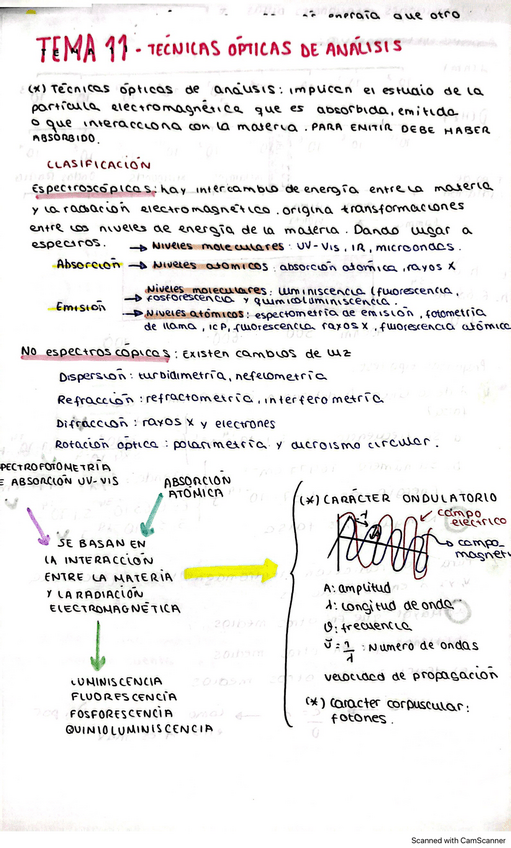 energía que otro
TEMA 11 - TECNICAS ÓPTICAS DE ANÁLISIS
(*) Técnicas ópticas de análisis: implican el estudio de la
partícula electromagnética que es absorbida, emitida
o que interacciona con la materia. PARA EMITIR DEBE HABER
ABSORBIDO.
CLASIFICACIÓN
Espectroscópicas: hay intercambio de energía entre la materia
y la radiación electromagnético. origina transformaciones
entre los niveles de energía de la materia. Dando lugar a
espectros.
Absorción
→ Niveles moleculares: UV-Vis, IR, microondas.
→ Niveles atómicos: absorción atómica, rayos X
Emisión
Niveles moleculares: luminiscencia (fluorescencia,
→ fosforescencia y quimioluminiscencia.
→ Niveles atómicos: espectometría de emisión, fotometría
de llama, ICP, fluorescencia rayos X, fluorescencia atómica
No espectroscópicas: Existen cambios de luz
Dispersión: turbidimetría, nefelometría
Refracción: refractometría, interferometría
Difracción: rayos X y electrones
Rotación óptica: polarimetría y dicroismo circular.
PECTROFOTOMETRÍA
E ABSORCIÓN UV-VIS
ABSORCIÓN
ATÓMICA
SE BASAN EN
LA INTERACCIÓN
ENTRE LA MATERIA
Y LA RADIACIÓN
ELECTROMAGNÉTICA
LUMINISCENCIA
FLUORESCENCIA
FOSFORESCENCIA
QUINIOLUMINISCENCIA
(*) CARÁCTER ONDULATORIO
λ
A
campo
eléctrico
campo
magnéti
A: amplitud
λ: longitud de onda
υ: frecuencia
ῡ = 1/λ : Numero de ondas
velocidad de propagación
(*) Carácter corpuscular:
fotones.
Scanned with CamScanner